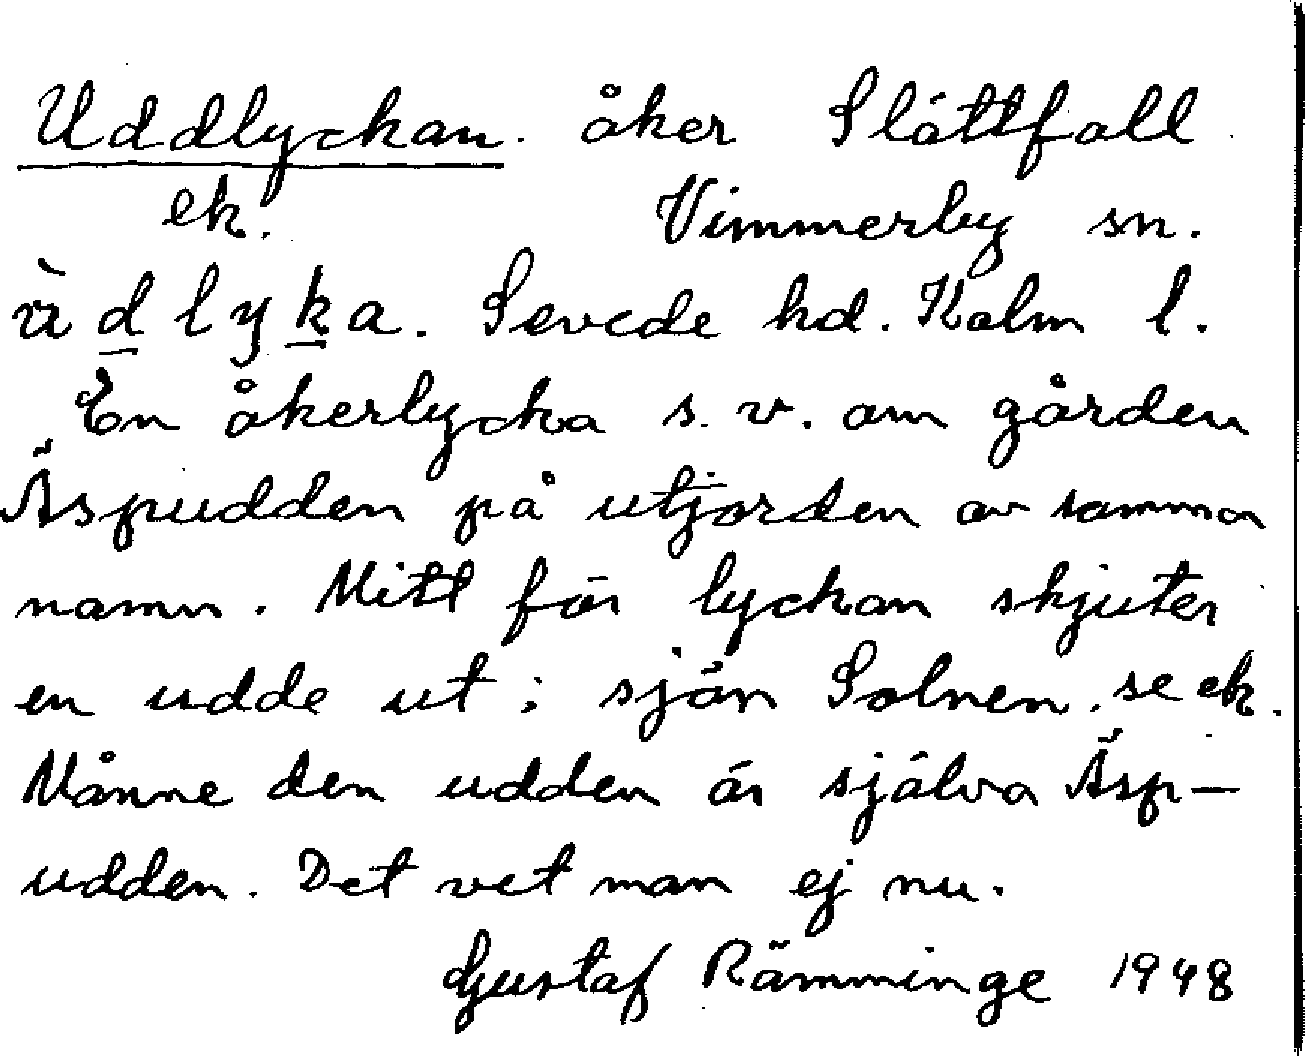 Uddlyckan. åker Slättfall
ek. Vimmerby sn.
ùdlyka. Sevede hd. Kalm l.
En åkerlycka s.v. om gården
Äspudden på utjorden av samma
namn. Mitt för lyckan skjuter
en udde ut i sjön Solnen. se ek.
Månne den udden är själva Äsp-
udden. Det vet man ej nu.
Gustaf Rämminge 1948